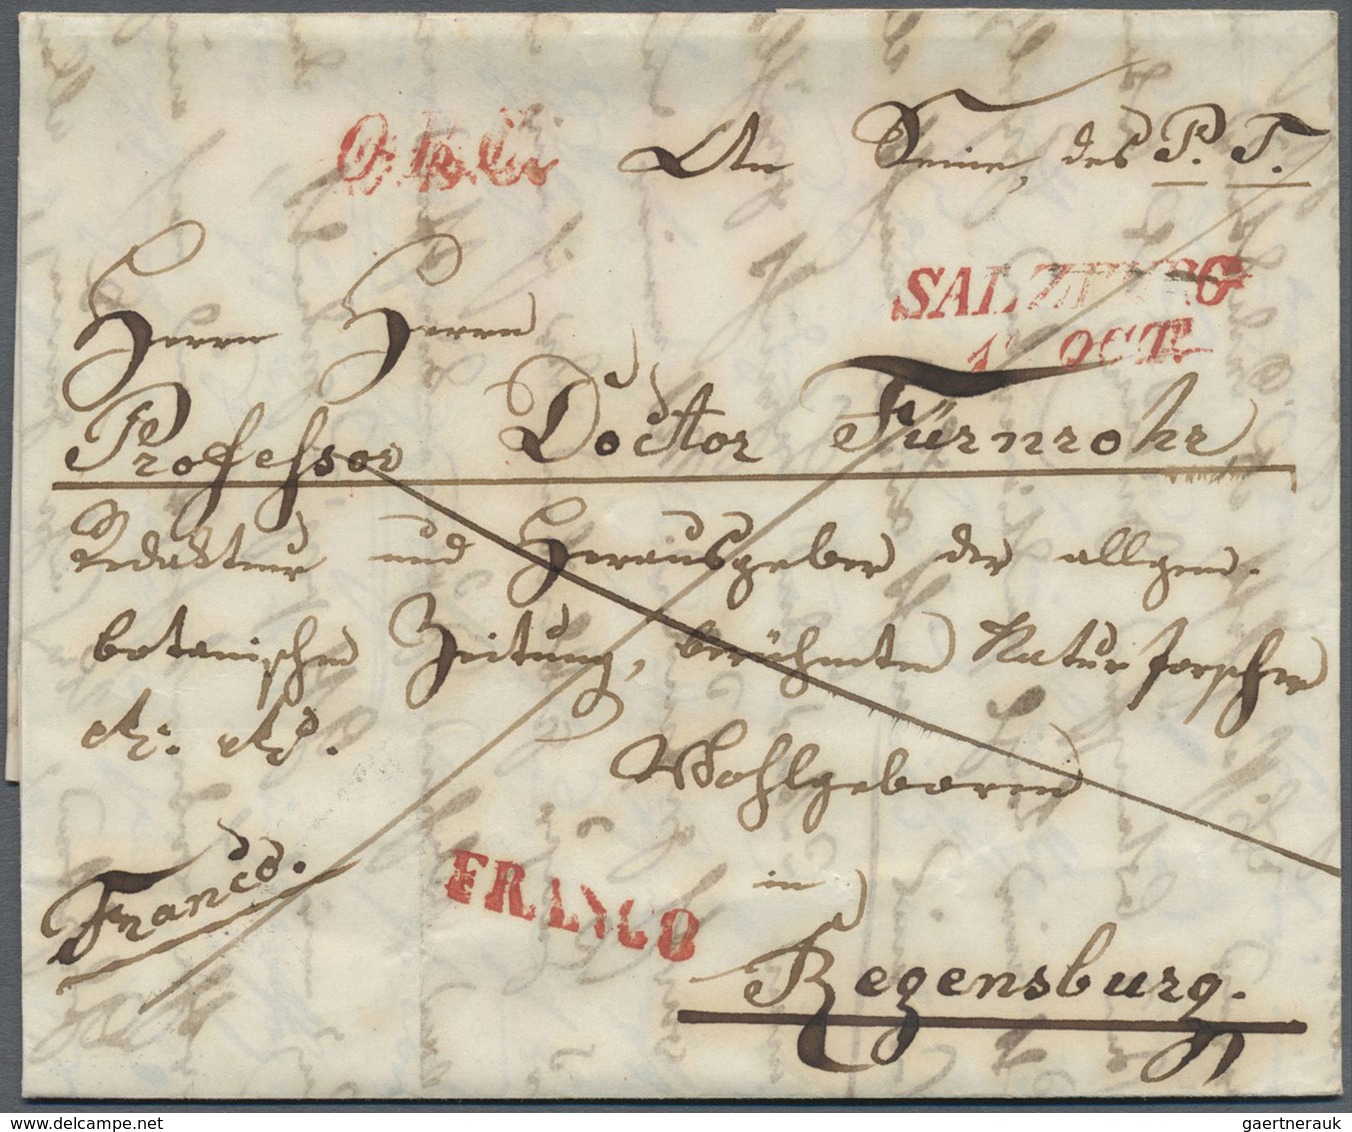 An Seine, des P. T.
SALZBURG
OCT.
Herrn Herrn
Professor Doctor Fürnrohr
Redakteur und Herausgeber der allgem.
botanischen Zeitung, berühmten Naturforscher
etc: etc.
Wohlgeboren
Franco.
FRANCO
in
Regensburg.
gaertnerauk
delcampe.net